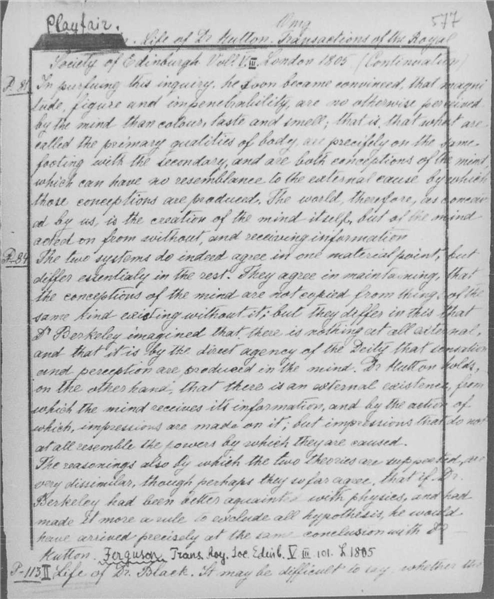 Playfair. Life of Dr Hutton. Transactions of the Royal
577
Society of Edinburgh Vol V. III London 1805 (Continuation)
P. 81 In purfuing this inquiry, he soon became convinced, that magni
tude, figure and impenetrability, are no otherwise perceived
by the mind than colour, taste and smell; that is, that what are
called the primary qualities of body, are precifely on the same
footing with the secondary, and are both conceptions of the mind,
which can have no resemblance to the external cause by which
those conceptions are produced. The world, therefore, as conceiv
ed by us, is the creation of the mind itself, but of the mind
acted on from without, and receiving information
P. 84 The two systems do indeed agree in one material point, but
differ essentialy in the rest. They agree in maintaining, that
the conceptions of the mind are not copied from things, of the
same kind existing without it; but they differ in this that
Dr Berkeley imagined that there is nothing at all external,
and that it is by the direct agency of the Deity that sensation
and perception are produced in the mind. Dr Hutton holds,
on the other hand, that there is an external existence, from
which the mind receives its information, and by the action of
which, impressions are made on it; but impressions that do not
at all resemble the powers by which they are caused.
The reasonings also by which the two theories are supported, are
very dissimilar, though perhaps they so far agree, that if Dr.
Berkeley had been better aquainted with physics, and had
made it more a rule to exclude all hypothesis, he would
have arrived precisely at the same conclusion with Dr
Hutton. Ferguson Trans. Roy. Soc. Edinb. V III 101. L 1805
P-113 II Life of Dr. Black. It may be difficult to say, whether the